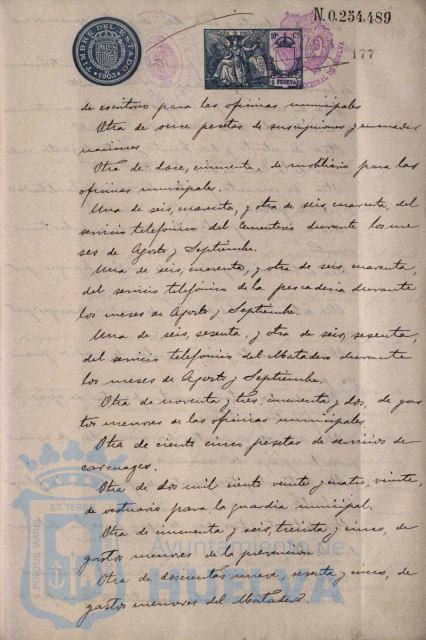 N.0.254.489
177
TIMBRE DEL ESTADO
1903
2 PESETAS
de escritorio para las oficinas municipales
Otra de once pesetas de suscripciones y encuader
naciones
Otra de doce, cincuenta, de mobiliario para las
oficinas municipales.
Una de seis, cuarenta, y otra de seis, cuarenta, del
servicio telefónico del Cementerio durante los me
ses de Agosto y Septiembre.
Una de seis, cuarenta, y otra de seis, cuarenta,
del servicio telefónico de la pescadería durante
los meses de Agosto y Septiembre.
Una de seis, sesenta, y otra de seis, sesenta,
del servicio telefónico del Matadero durante
los meses de Agosto y Septiembre.
Otra de noventa y tres, cincuenta y dos, de gas
tos menores de las oficinas municipales
Otra de ciento cinco pesetas de servicios de
carruages.
Otra de dos mil ciento veinte y cuatro, veinte,
de vestuario para la guardia municipal.
Otra de cincuenta y seis, treinta y cinco, de
gastos menores de la prevención
Otra de doscientas nueve, sesenta y cinco, de
gastos menores del Matadero.
PORTUS MARIS
ET TERRAE
Ayuntamiento de
HUELVA